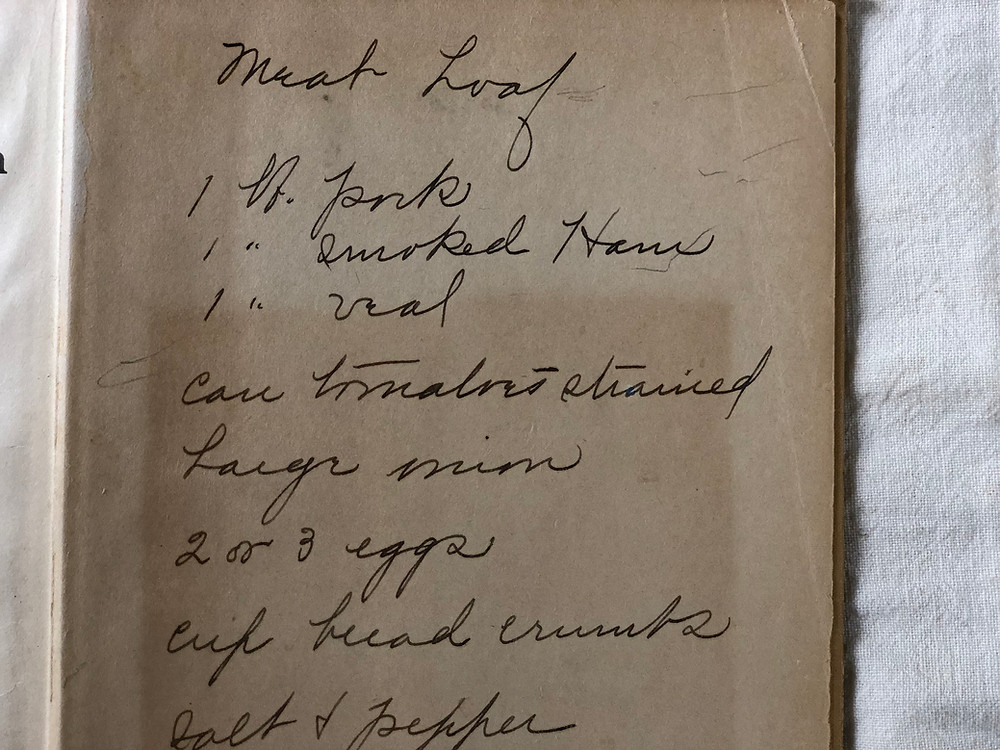 Meat Loaf
1 lb. pork
1 " smoked Ham
1 " veal
can tomatoes strained
Large onion
2 or 3 eggs
cup bread crumbs
salt & pepper